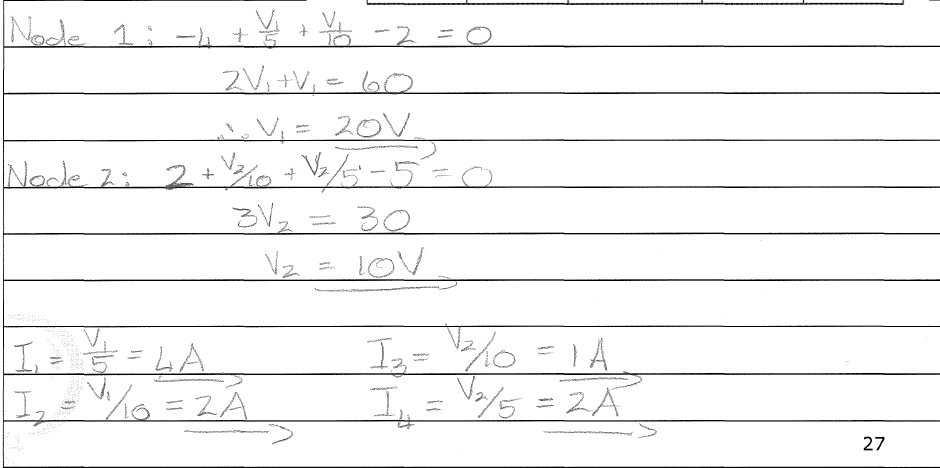 Node 1: -4 + V₁/5 + V₁/10 - 2 = 0
2V₁ + V₁ = 60
∴ V₁ = 20V
Node 2: 2 + V₂/10 + V₂/5 - 5 = 0
3V₂ = 30
V₂ = 10V
I₁ = V₁/5 = 4A I₃ = V₂/10 = 1A
I₂ = V₁/10 = 2A I₄ = V₂/5 = 2A
27